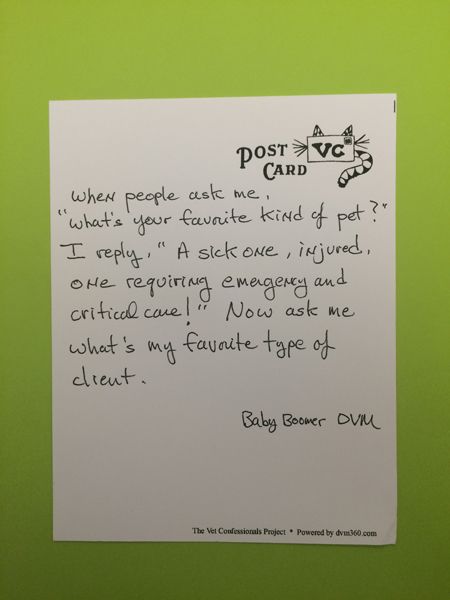 POST CARD
VC
When people ask me,
"What's your favorite kind of pet?"
I reply, "A sick one, injured,
one requiring emergency and
critical care!" Now ask me
what's my favorite type of
client.
Baby Boomer DVM
The Vet Confessionals Project * Powered by dvm360.com